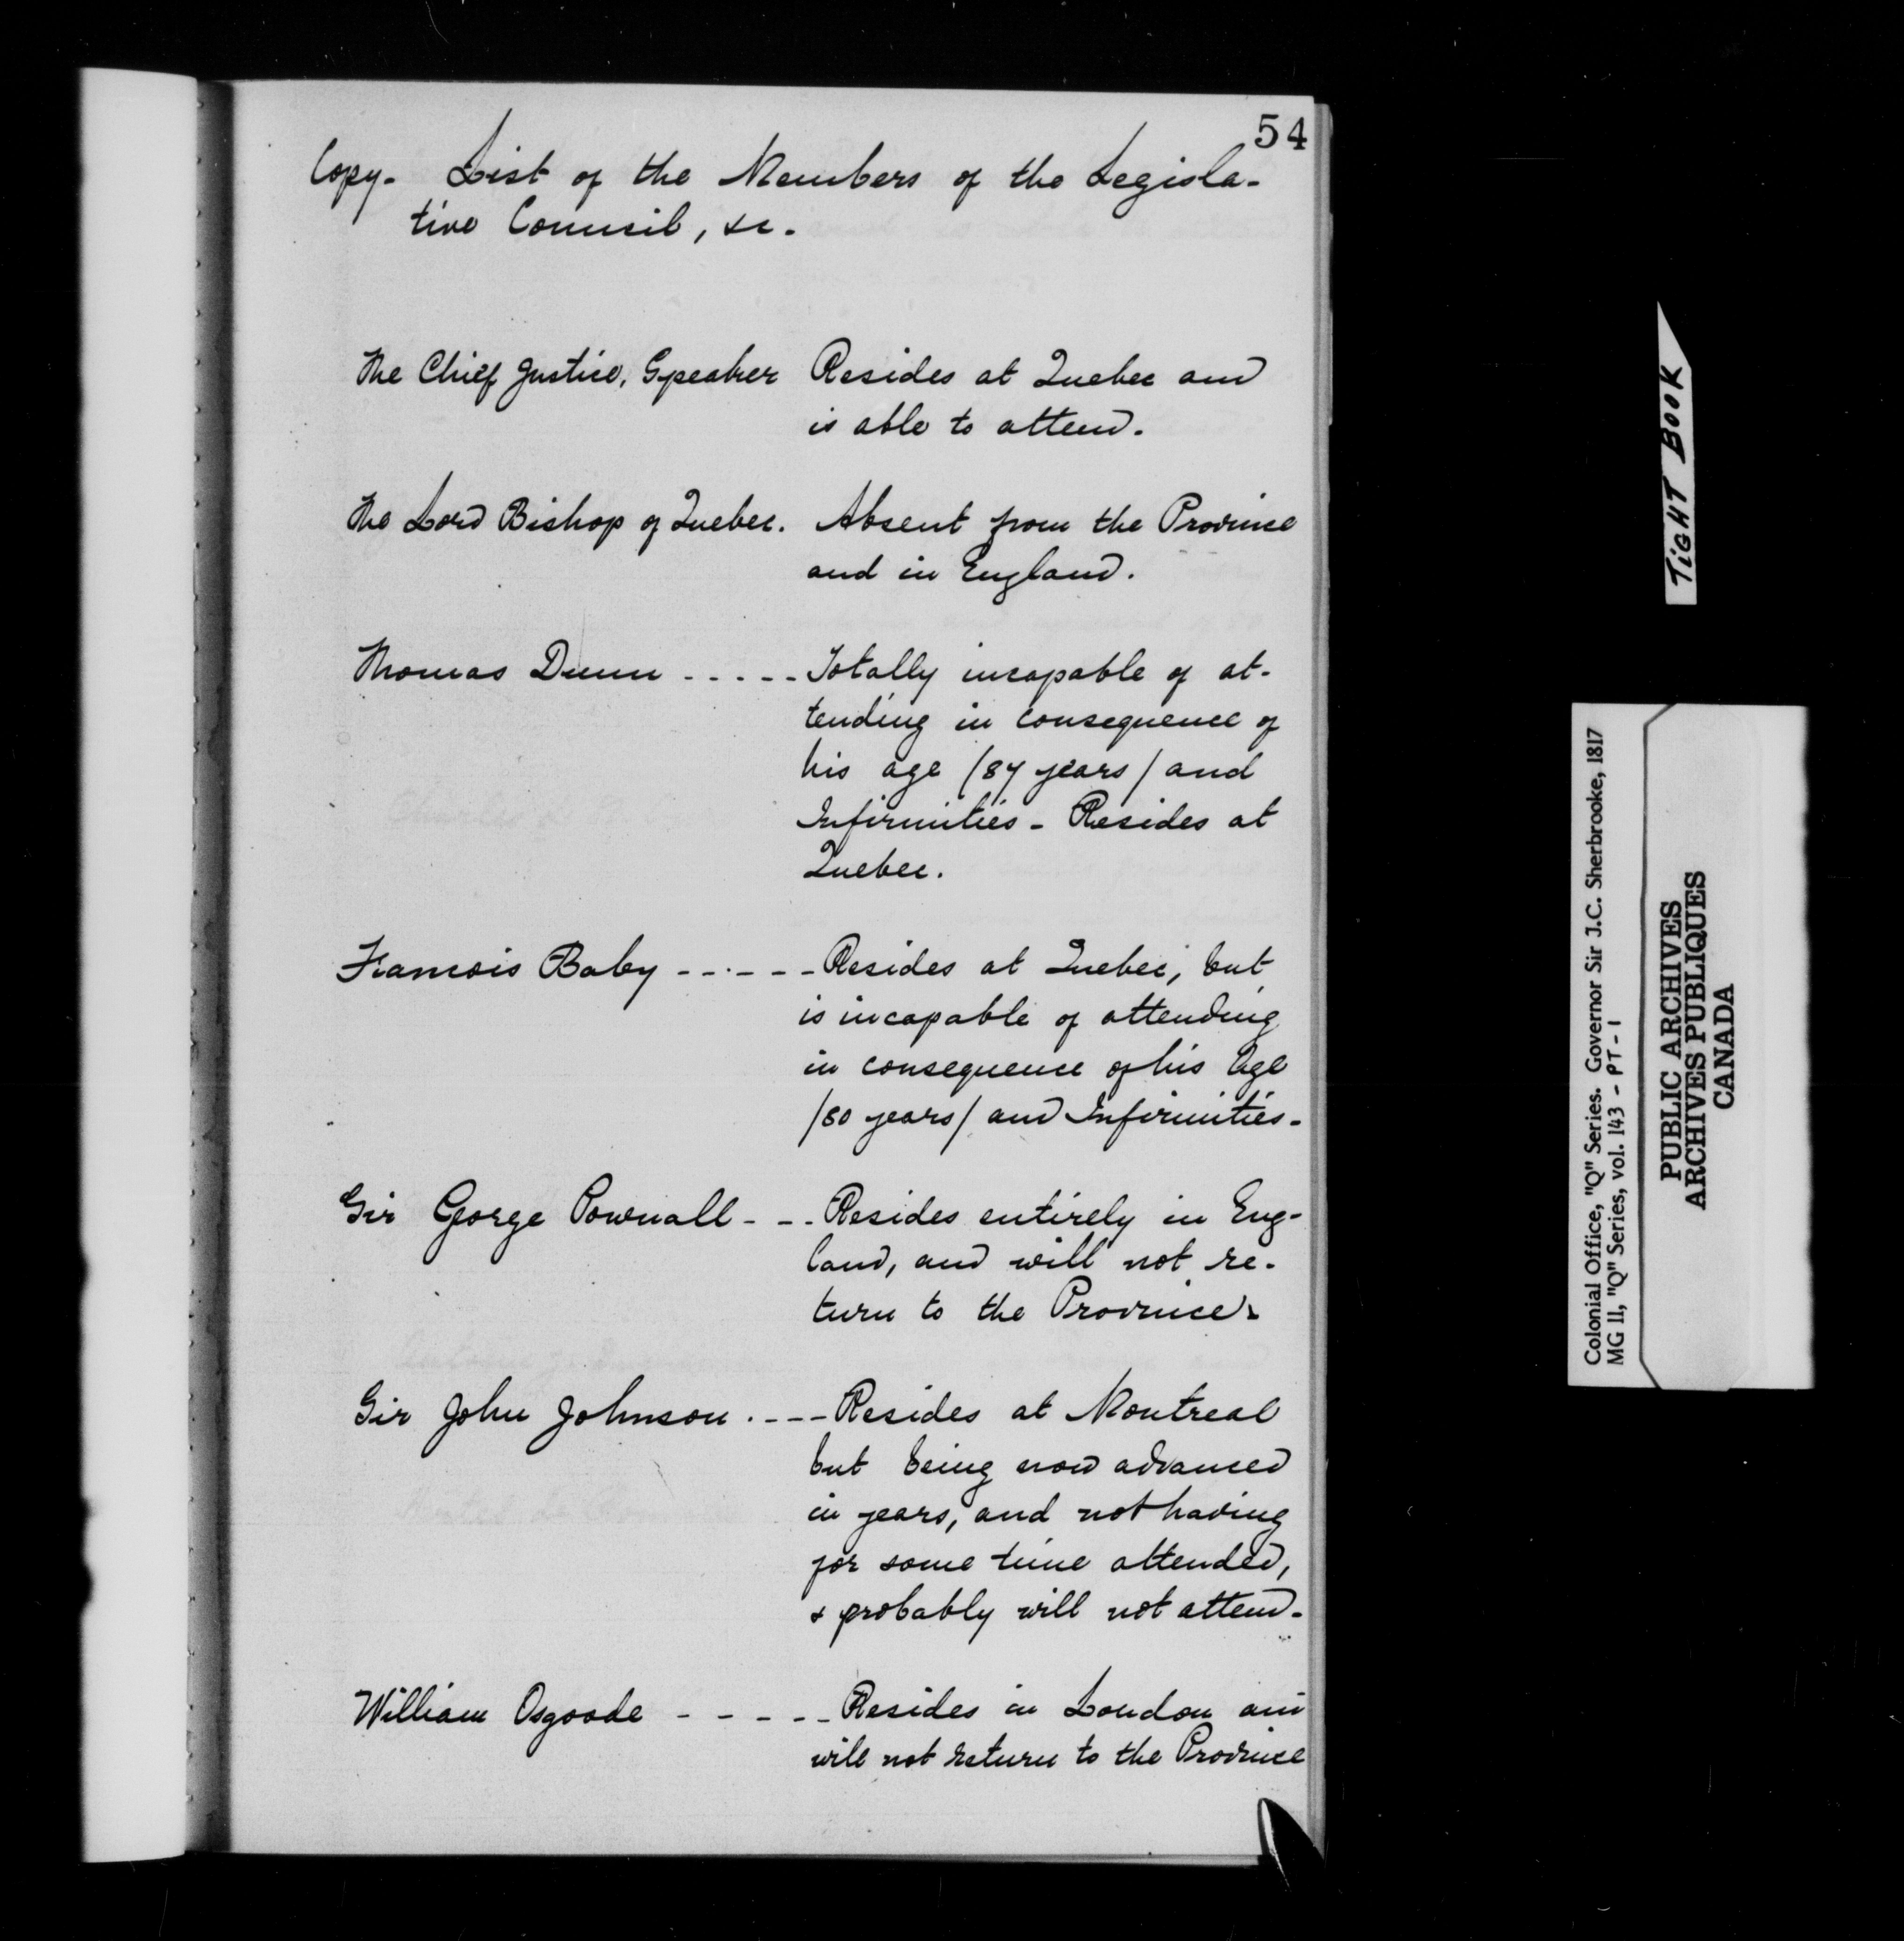 54
Copy. List of the Members of the Legisla-
tive Council, &c.
The Chief Justice, Speaker Resides at Quebec and
is able to attend.
The Lord Bishop of Quebec. Absent from the Province
and in England.
Thomas Dunn ----- Totally incapable of at-
tending in consequence of
his age /87 years/ and
Infirmities - Resides at
Quebec.
Francois Baby ----- Resides at Quebec, but
is incapable of attending
in consequence of his Age
/80 years/ and Infirmities-
Sir George Pownall - -- Resides entirely in Eng-
land, and will not re-
turn to the Province-
Sir John Johnson ---- Resides at Montreal
but being now advanced
in years, and not having
for some time attended,
& probably will not attend-
William Osgoode ----- Resides in London and
will not return to the Province
TIGHT BOOK
Colonial Office, "Q" Series. Governor Sir J.C. Sherbrooke, 1817
MG 11, "Q" Series, vol. 143 - PT-1
PUBLIC ARCHIVES
ARCHIVES PUBLIQUES
CANADA